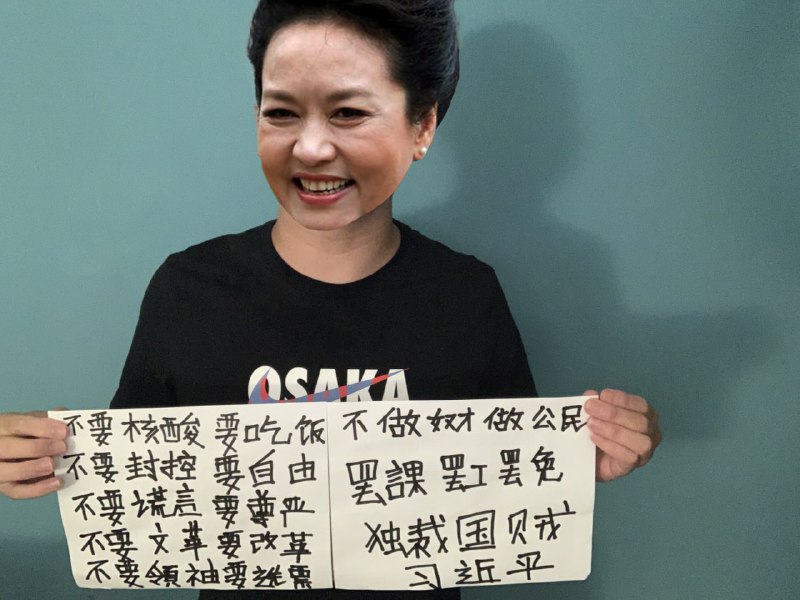 OSAKA
不要核酸 要吃饭
不要封控 要自由
不要谎言 要尊严
不要文革要改革
不要領袖要选票
不做奴才做公民
罢課 罢工 罢免
独裁国贼
习近平